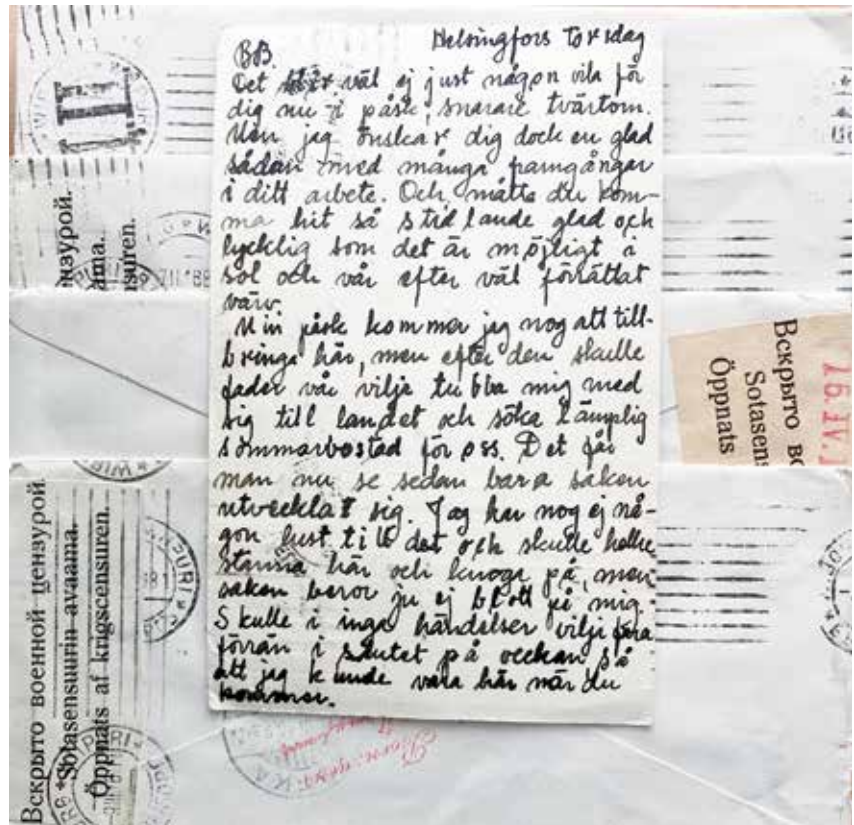 Helsingfors Torsdag
BB.
Det blir väl ej just någon vila för
dig nu i påsk, snarare tvärtom.
Men jag önskar dig dock en glad
sådan med många framgångar
i ditt arbete. Och, måtte du kom-
ma hit så strålande glad och
lycklig som det är möjligt i
sol och vår efter väl förrättat
värv.
Min påsk kommer jag nog att till-
bringa här, men efter den skulle
fader vår vilja tubba mig med
sig till landet och söka lämplig
sommarbostad för oss. Det får
man nu se sedan bara saken
utvecklat sig. Jag har nog ej nå-
gon lust till det och skulle hellre
stanna här och knoga på, men
saken beror ju ej blott på mig.
Skulle i inga händelser vilja fara
förrän i slutet på veckan så
att jag kunde vara här när du
kommer.
II
цензурой.
ama.
suren.
Вскрыто военной цензурой.
Sotasensuurin avaama.
Öppnats af krigscensuren.
Вскрыто во
Sotasens
Öppnats